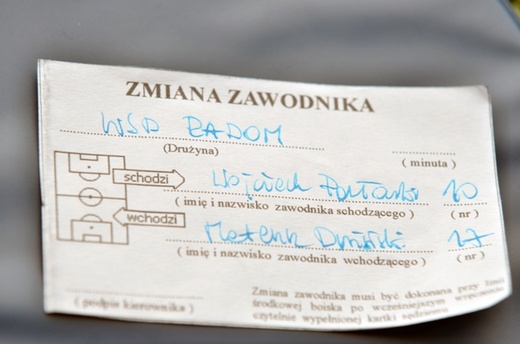 ZMIANA ZAWODNIKA
WSP RADOM
(Drużyna)
( minuta )
schodzi
Wojciech 10
( imię i nazwisko zawodnika schodzącego ) ( nr )
wchodzi
17
( imię i nazwisko zawodnika wchodzącego ) ( nr )
Zmiana zawodnika musi być dokonana przy linii
środkowej boiska po wcześniejszym wręczeniu
( podpis kierownika ) czytelnie wypełnionej kartki sędziemu